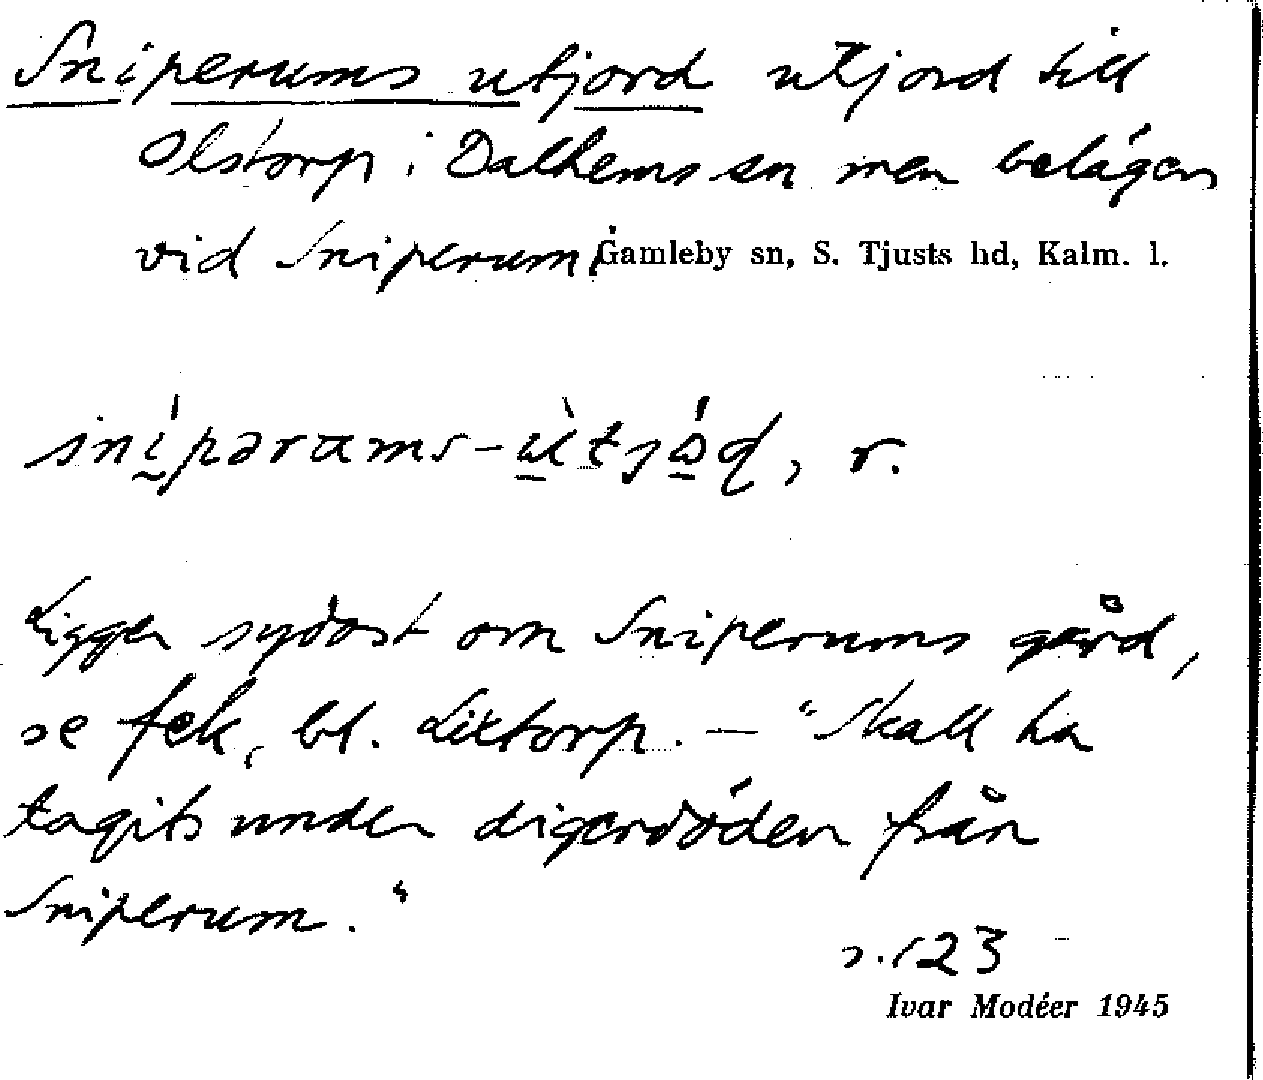 Sniperums utjord utjord till
Olstorp i Dalhems sn men belägen
vid Sniperum, Gamleby sn, S. Tjusts hd, Kalm. l.
r.
Ligger sydost om Sniperums gård,
se fek, bl. Lixtorp. — "Skall ha
tagits under digerdöden från
Sniperum."
s. 123
Ivar Modéer 1945